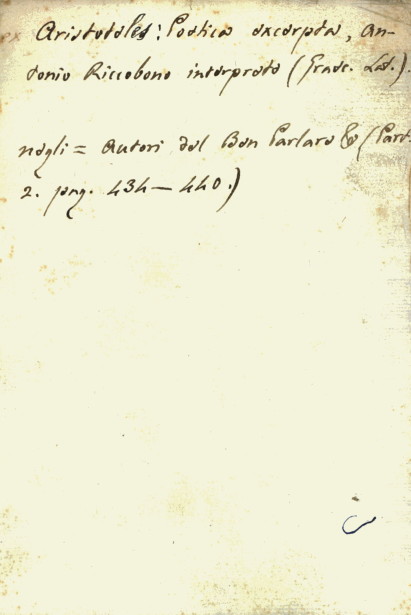 Aristoteles: Poetica excerpta, An-
tonio Riccobono interprete (Graec. Lat.).
negli = Autori del Ben Parlare & (Part.
2. pag. 434 — 440.)